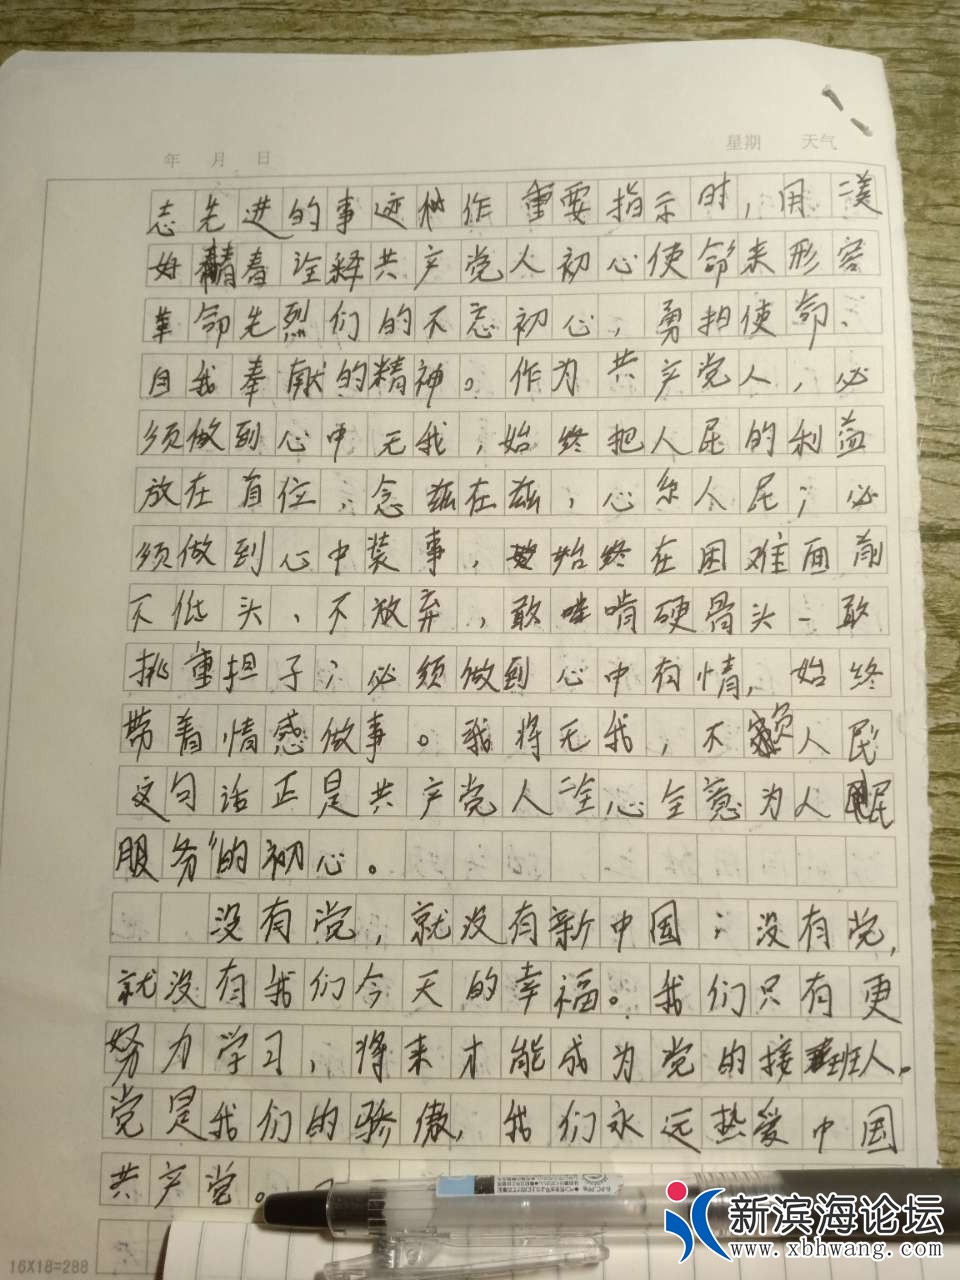 年 月 日 星期 天气
志先进的事迹作重要指示时，用“美
好青春诠释共产党人初心使命来形容
革命先烈们的不忘初心，勇担使命、
自我奉献的精神。作为共产党人，必
须做到心中无我，始终把人民的利益
放在首位，念兹在兹，心系人民；必
须做到心中装事，始终在困难面前
不低头、不放弃，敢啃硬骨头、敢
挑重担子；必须做到心中有情，始终
带着情感做事。我将无我，不负人民
这句话正是共产党人“全心全意为人民
服务”的初心。
没有党，就没有新中国；没有党，
就没有我们今天的幸福。我们只有更
努力学习，将来才能成为党的接班人。
党是我们的骄傲，我们永远热爱中国
共产党。
16X18=288
新滨海论坛
www.xbhwang.com